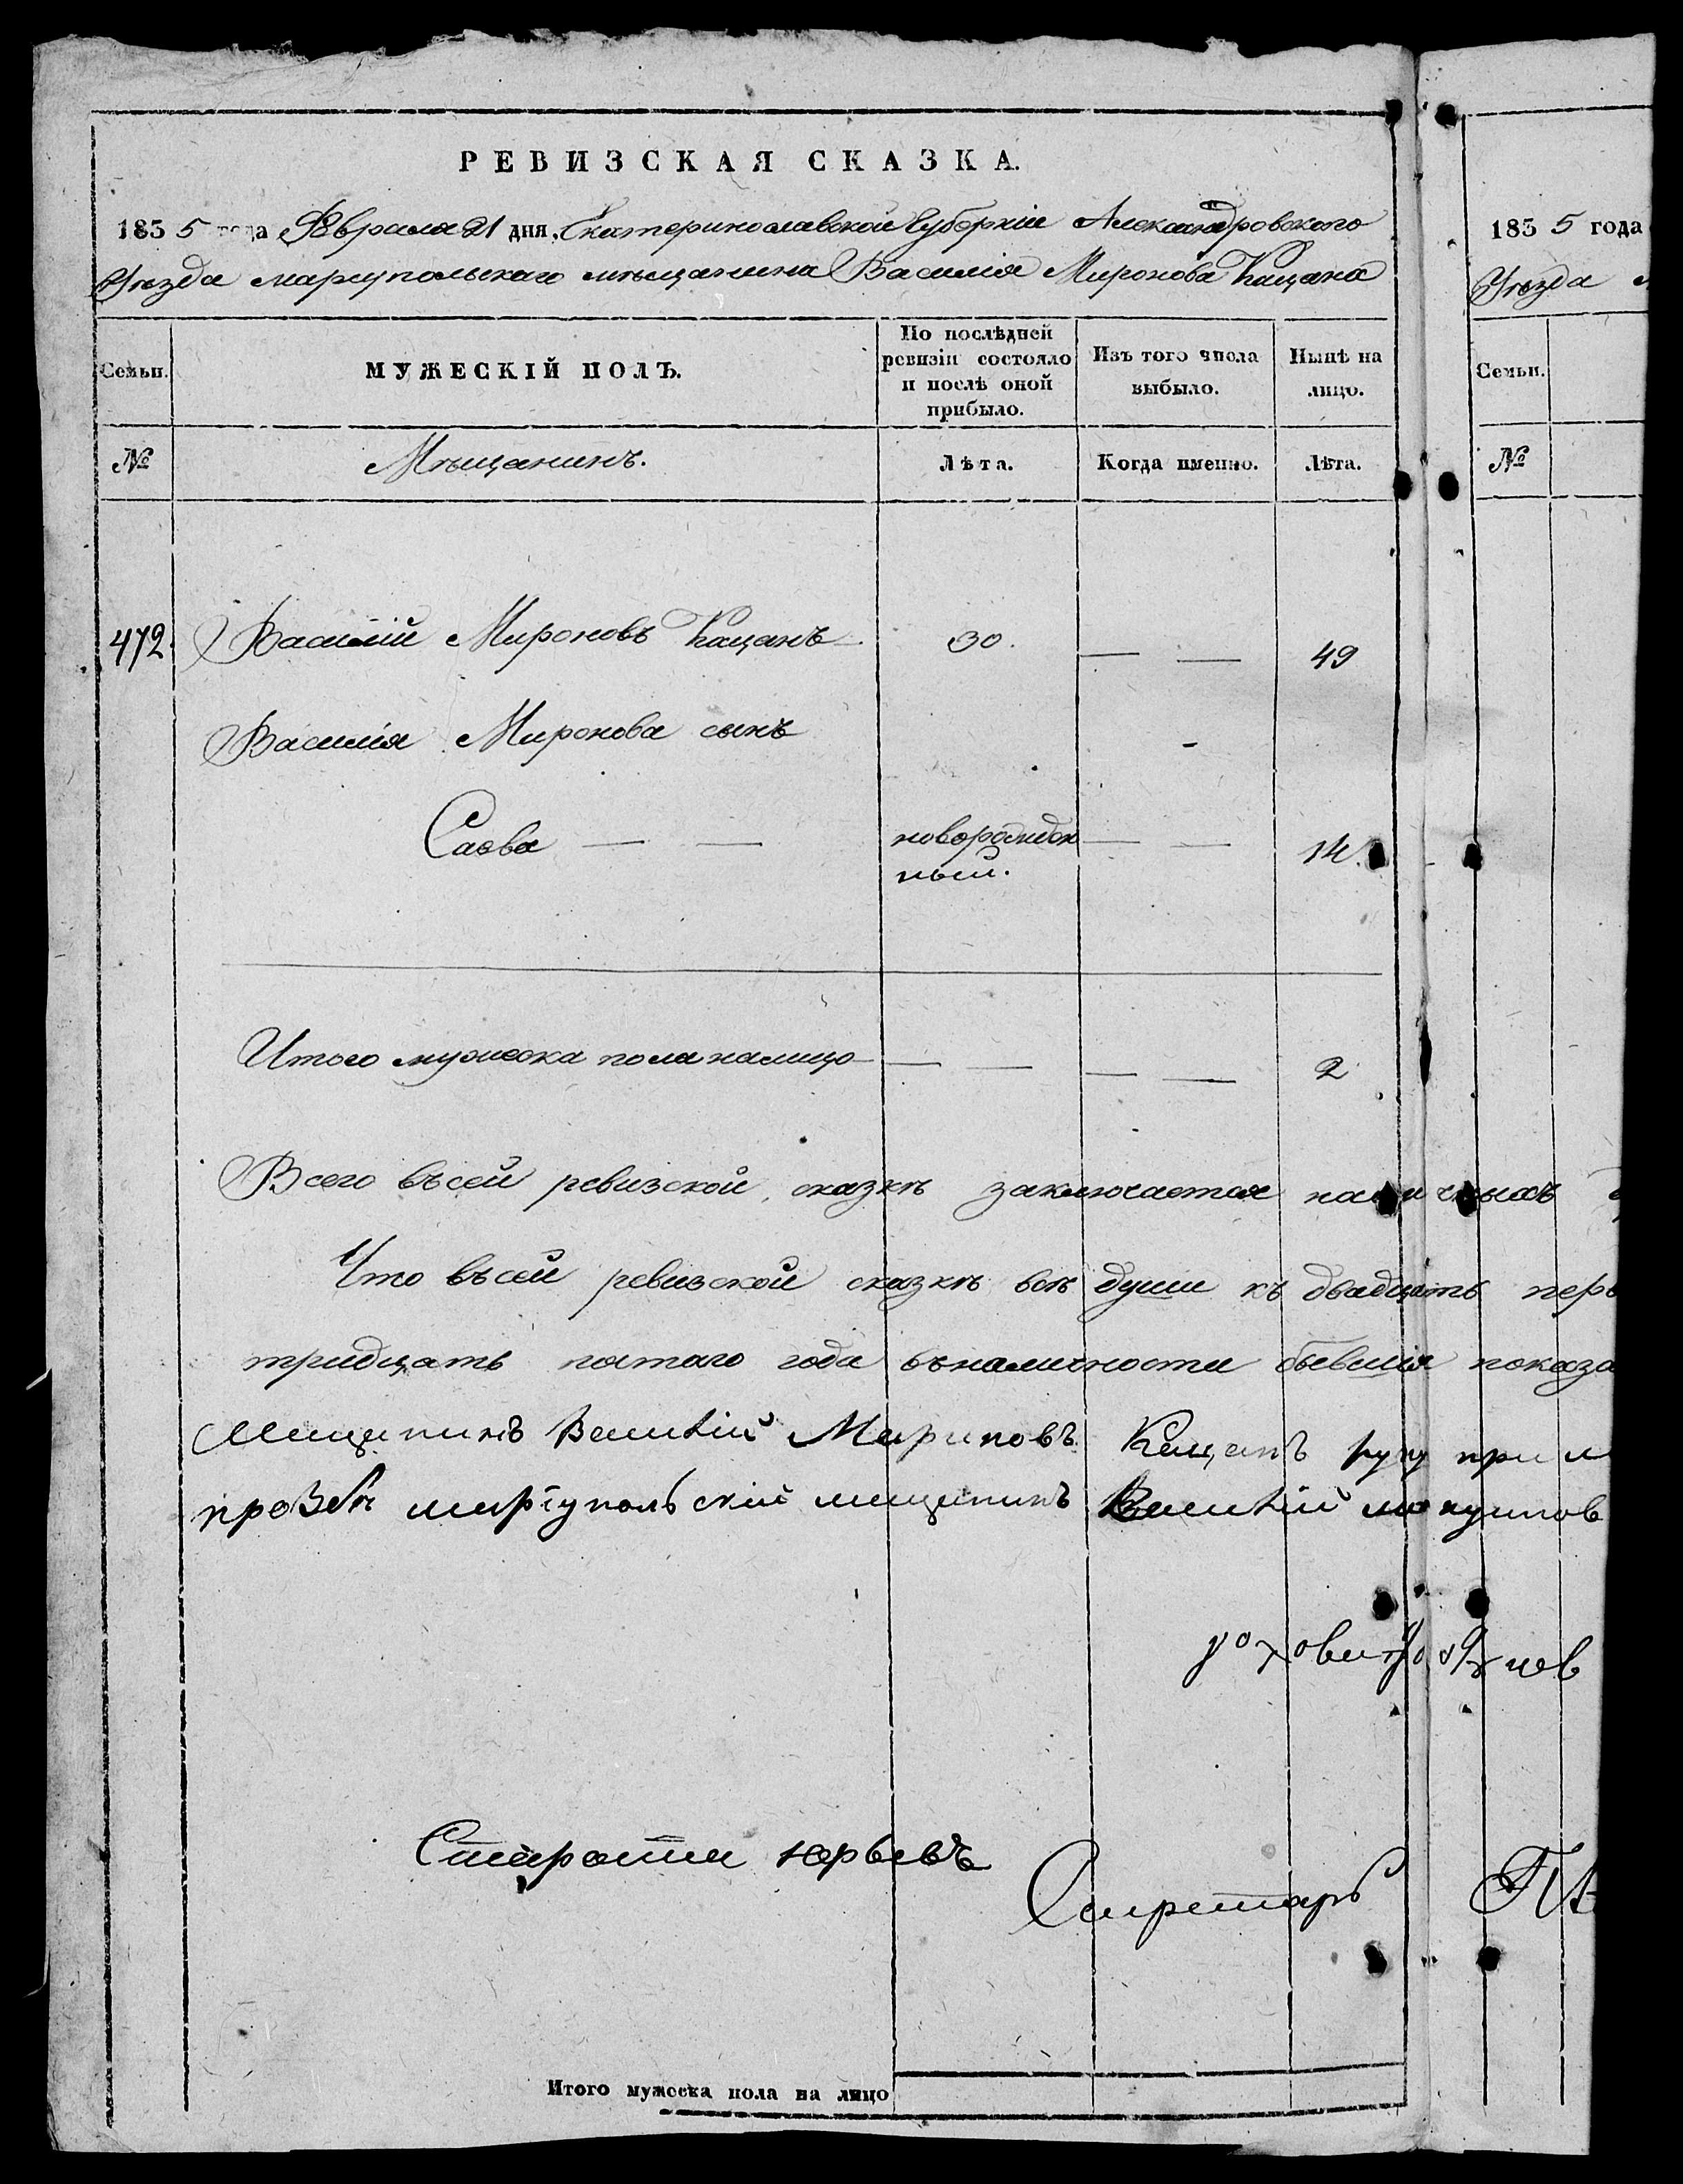 РЕВИЗСКАЯ СКАЗКА.
1835 года Февраля 21 дня, Екатеринославской Губерніи Александровского
Уезда мариупольскаго мѣщанина Василія Миронова Кацана
Семьи.
МУЖЕСКІЙ ПОЛЪ.
По послѣдней
ревизіи состояло
и послѣ оной
прибыло.
Изъ того числа
выбыло.
Нынѣ на
лицо.
№
Мѣщанинъ.
Лѣта.
Когда именно.
Лѣта.
472.
Василій Мироновъ Кацанъ
30.
49
Василія Миронова сынъ
Савва
новорожден
ный.
14.
Итого мужеска пола налицо
2
Всего въсей ревизской сказкѣ заключается наличныхъ
Что въсей ревизской сказкѣ всѣ души къ двадцать перв
тридцать пятаго года въналичности бывшія показа
Мещанинъ Василій Мироновъ Кацанъ руку
мариупольскій мещанинъ Василій
Староста юрьевъ
Секретарь
Итого мужеска пола на лицо
1835 года
Уезда
Семьи.
№